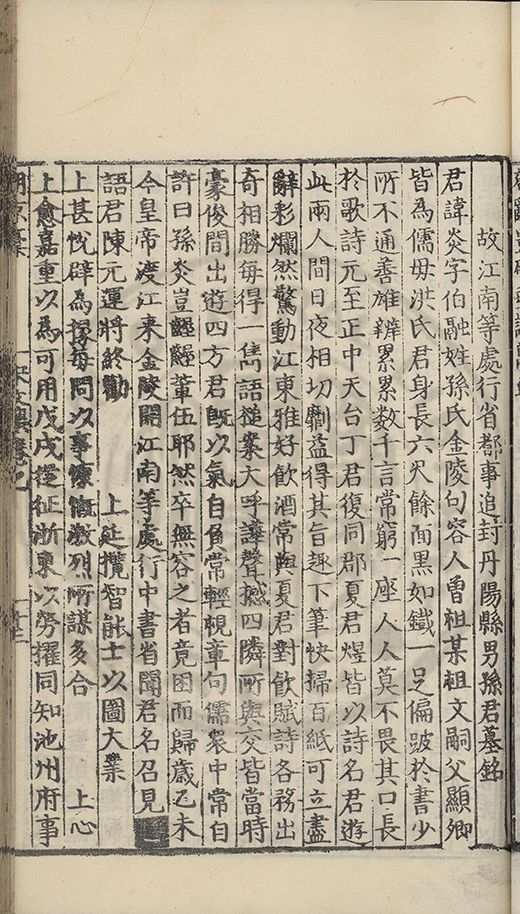 故江南等處行省都事追封丹陽縣男孫君墓銘
君諱炎字伯融姓孫氏金陵句容人曾祖某祖文嗣父顯卿
皆為儒母洪氏君身長六尺餘面黑如鐵一足偏跛於書少
所不通善雄辨累累数千言常窮一座人人莫不畏其口長
於歌詩元至正中天台丁君復同郡夏君煜皆以詩名君遊
此兩人間日夜相切劘益得其旨趣下筆快掃百紙可立盡
辭彩爛然驚動江東雅好飲酒常與夏君對飲賦詩各務出
奇相勝每得一雋語搥案大呼譁聲撼四隣所與交皆當時
豪俊間出遊四方君既以氣自負常輕視章句儒衆中常自
許曰孫炎豈齷齪輩伍耶然卒無容之者竟困而歸歲乙未
今皇帝渡江来金陵開江南等處行中書省聞君名召見
語君陳元運將終勸 上延攬智能士以圖大業
上甚悅辟為掾每問以事慷慨激烈所謀多合 上心
上愈嘉重以為可用戊戌從征浙東以勞擢同知池州府事